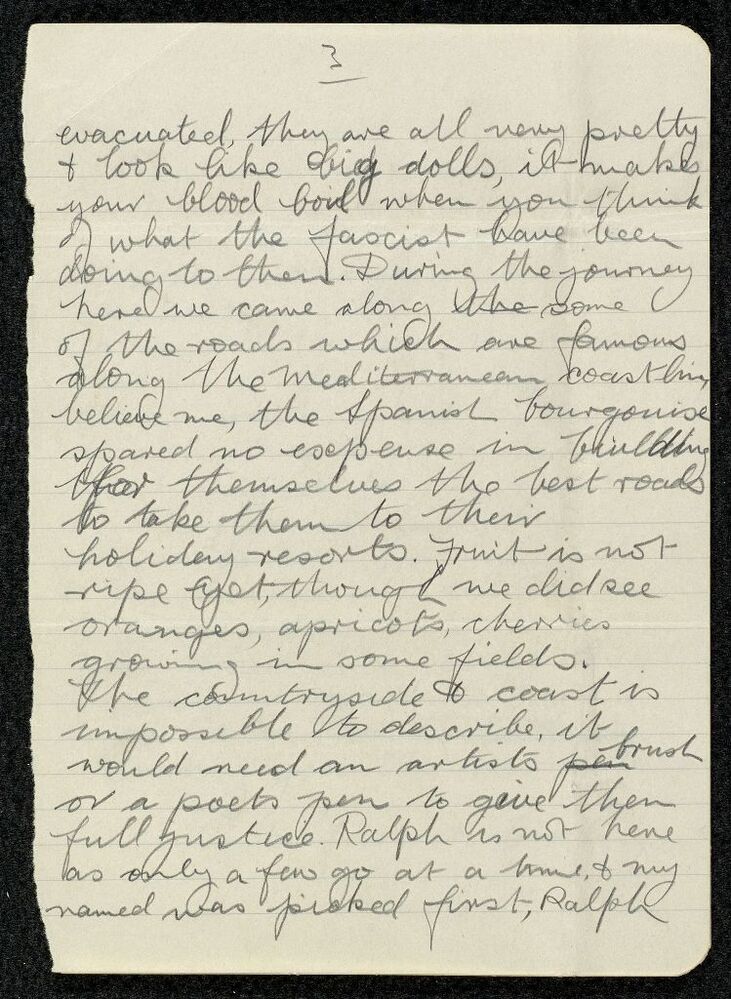 3
evacuated, they are all very pretty
& look like big dolls, it makes
your blood boil when you think
of what the fascist have been
doing to them. During the journey
here we came along the some
of the roads which are famous
along the mediterranean coastline,
believe me, the Spanish bourgouise
spared no expense in building
for themselves the best roads
to take them to their
holiday resorts. Fruit is not
ripe yet, though we did see
oranges, apricots, cherries
growing in some fields.
The countryside & coast is
impossible to describe, it
would need an artists pen brush
or a poets pen to give them
full justice. Ralph is not here
as only a few go at a time, & my
named was picked first, Ralph